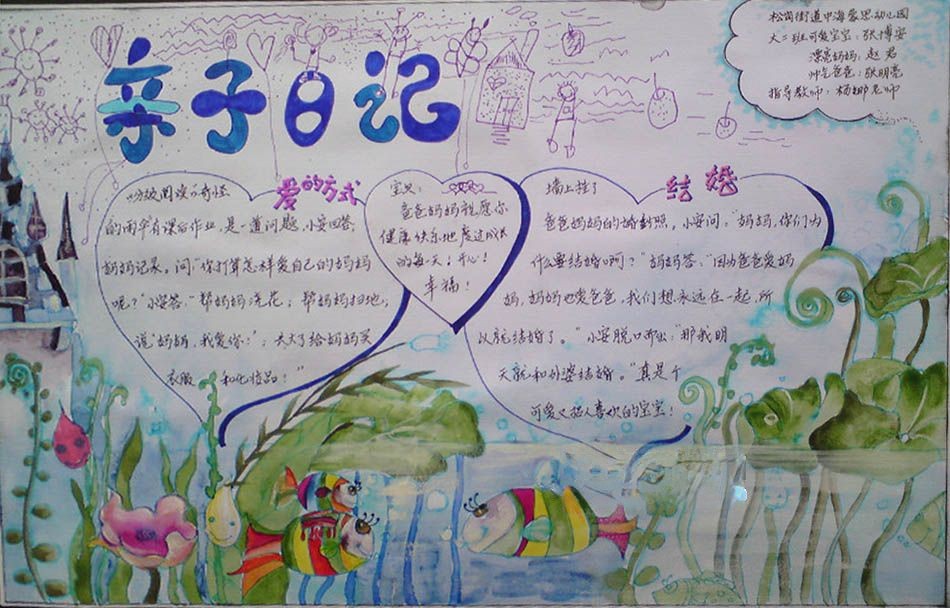 亲子日记
松岗街道中海蒙思幼儿园
大二班可爱宝宝：张博安
漂亮妈妈：赵君
帅气爸爸：张明亮
指导教师：杨娜老师
爱的方式
分级阅读《奇怪
的雨伞》有课后作业，是一道问题，小安回答，
妈妈记录。问“你打算怎样爱自己的妈妈
呢？”小安答：“帮妈妈浇花；帮妈妈扫地；
说‘妈妈，我爱你！’；长大了给妈妈买
衣服 和化妆品！”
宝贝：
爸爸妈妈祝愿你
健康快乐地度过成长
的每一天！开心！
幸福！
结婚
墙上挂了
爸爸妈妈的婚纱照，小安问：“妈妈，你们为
什么要结婚啊？”妈妈答：“因为爸爸爱妈
妈，妈妈也爱爸爸，我们想永远在一起，所
以就结婚了。”小安脱口而出：“那我明
天就和外婆结婚。”真是个
可爱又招人喜欢的宝宝！